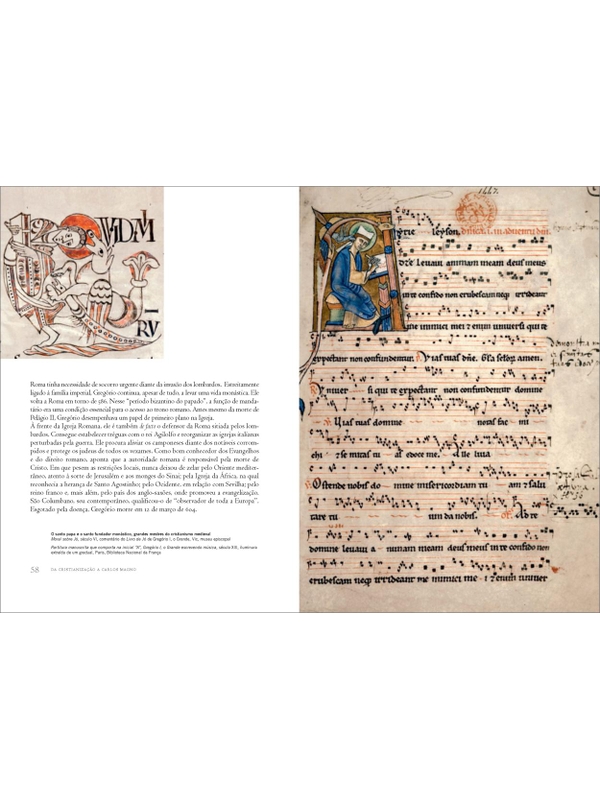 VIDMI
RV
Roma tinha necessidade de socorro urgente diante da invasão dos lombardos. Estreitamente
ligado à família imperial, Gregório continua, apesar de tudo, a levar uma vida monástica. Ele
volta a Roma em torno de 586. Nesse “período bizantino do papado”, a função de manda-
tário era uma condição essencial para o acesso ao trono romano. Antes mesmo da morte de
Pelágio II, Gregório desempenhava um papel de primeiro plano na Igreja.
À frente da Igreja Romana, ele é também de facto o defensor da Roma sitiada pelos lom-
bardos. Consegue estabelecer tréguas com o rei Agilolfo e reorganizar as igrejas italianas
perturbadas pela guerra. Ele procura aliviar os camponeses diante dos notáveis corrom-
pidos e protege os judeus de todos os vexames. Como bom conhecedor dos Evangelhos
e do direito romano, aponta que a autoridade romana é responsável pela morte de
Cristo. Em que pesem as restrições locais, nunca deixou de zelar pelo Oriente mediter-
râneo, atento à sorte de Jerusalém e aos monges do Sinai; pela Igreja da África, na qual
reconhecia a herança de Santo Agostinho; pelo Ocidente, em relação com Sevilha; pelo
reino franco e, mais além, pelo país dos anglo-saxões, onde promoveu a evangelização.
São Columbano, seu contemporâneo, qualificou-o de “observador de toda a Europa”.
Esgotado pela doença, Gregório morre em 12 de março de 604.
O santo papa e o santo fundador monástico, grandes mestres do cristianismo medieval
Moral sobre Jó, século VI, comentário do Livro de Jó de Gregório I, o Grande, Vic, museu episcopal
Partitura manuscrita que comporta na inicial “A”, Gregório I, o Grande escrevendo música, século XIII, iluminura
extraída de um gradual, Paris, Biblioteca Nacional da França
58 DA CRISTIANIZAÇÃO A CARLOS MAGNO
1447.
yrie leyson. dnica. i. in adventu dni.
dte levavi animam meam deus meus
in te confido non erubescam neqz irrideant
me inimici mei z enim universi qui te
expectant non confundentur. Vias tuas dne.
niversi qui te expectant non confundentur domine
Vias tuas domine notas fac mi
chi z semitas tuas edoce me. Alleluia
Ostende nobis domine misericordiam tuam z salu
tare tuum da nobis. Ad te
domine levavi animam meam deus meus in te confido non
erubescam neqz irrideant me inimici mei z enim univsi